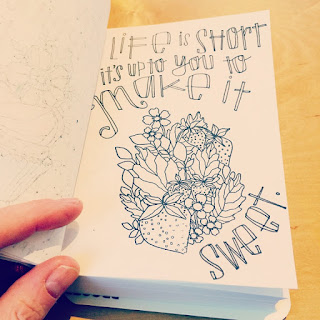 LIFE is SHORT
it's up to you to
make it
sweet.